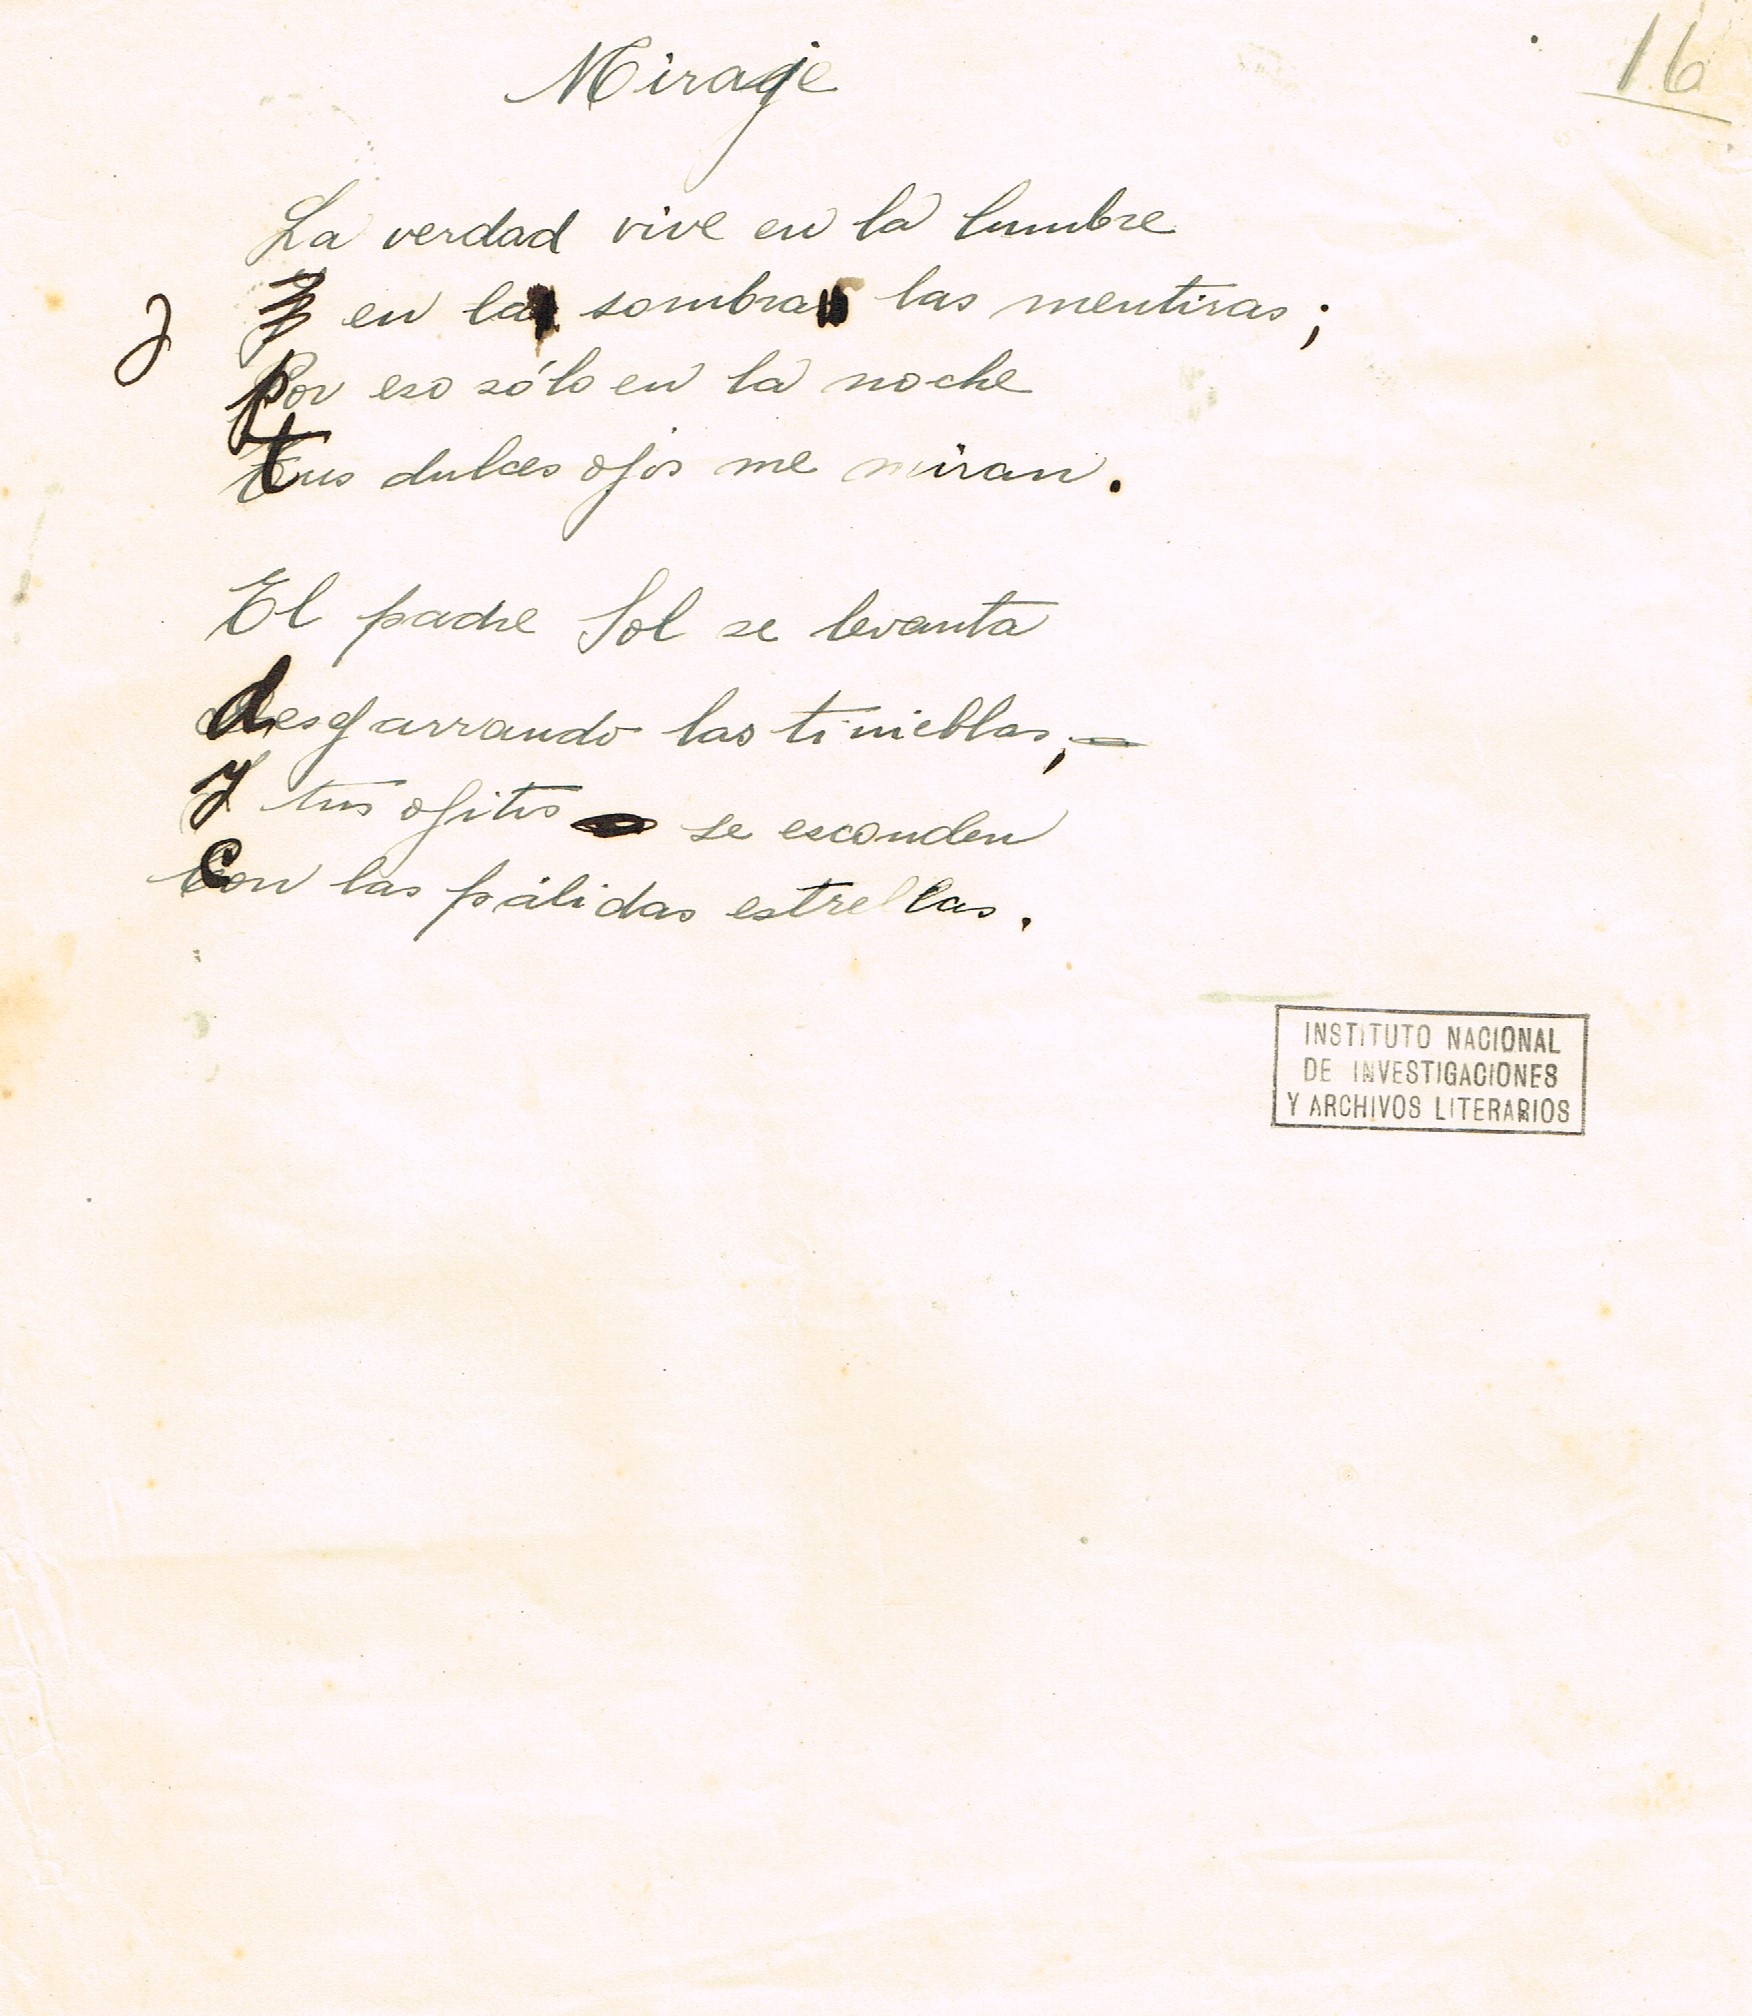 16
Miraje
La verdad vive en la lumbre
y en la sombra las mentiras;
por eso sólo en la noche
tus dulces ojos me miran.
El padre Sol se levanta
desgarrando las tinieblas,
y tus ojitos se esconden
con las pálidas estrellas.
INSTITUTO NACIONAL
DE INVESTIGACIONES
Y ARCHIVOS LITERARIOS